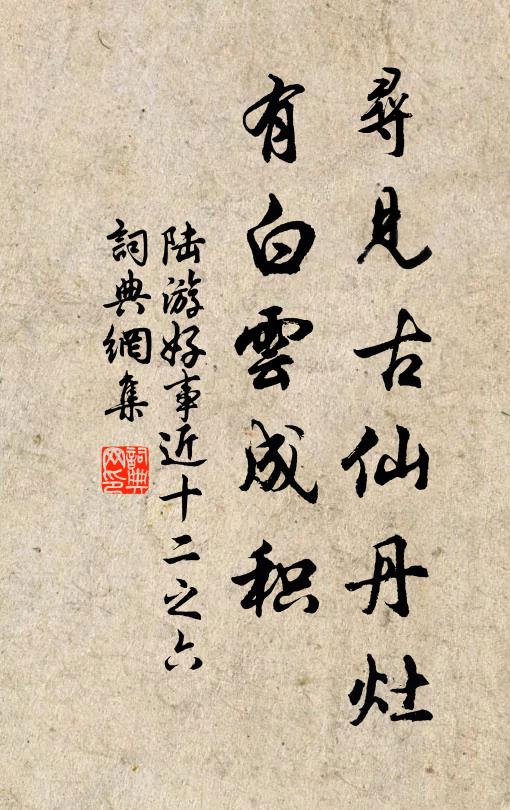 尋見古仙丹灶
有白雲成积
陆游好事近十二之六
詞典網集
詞典網印